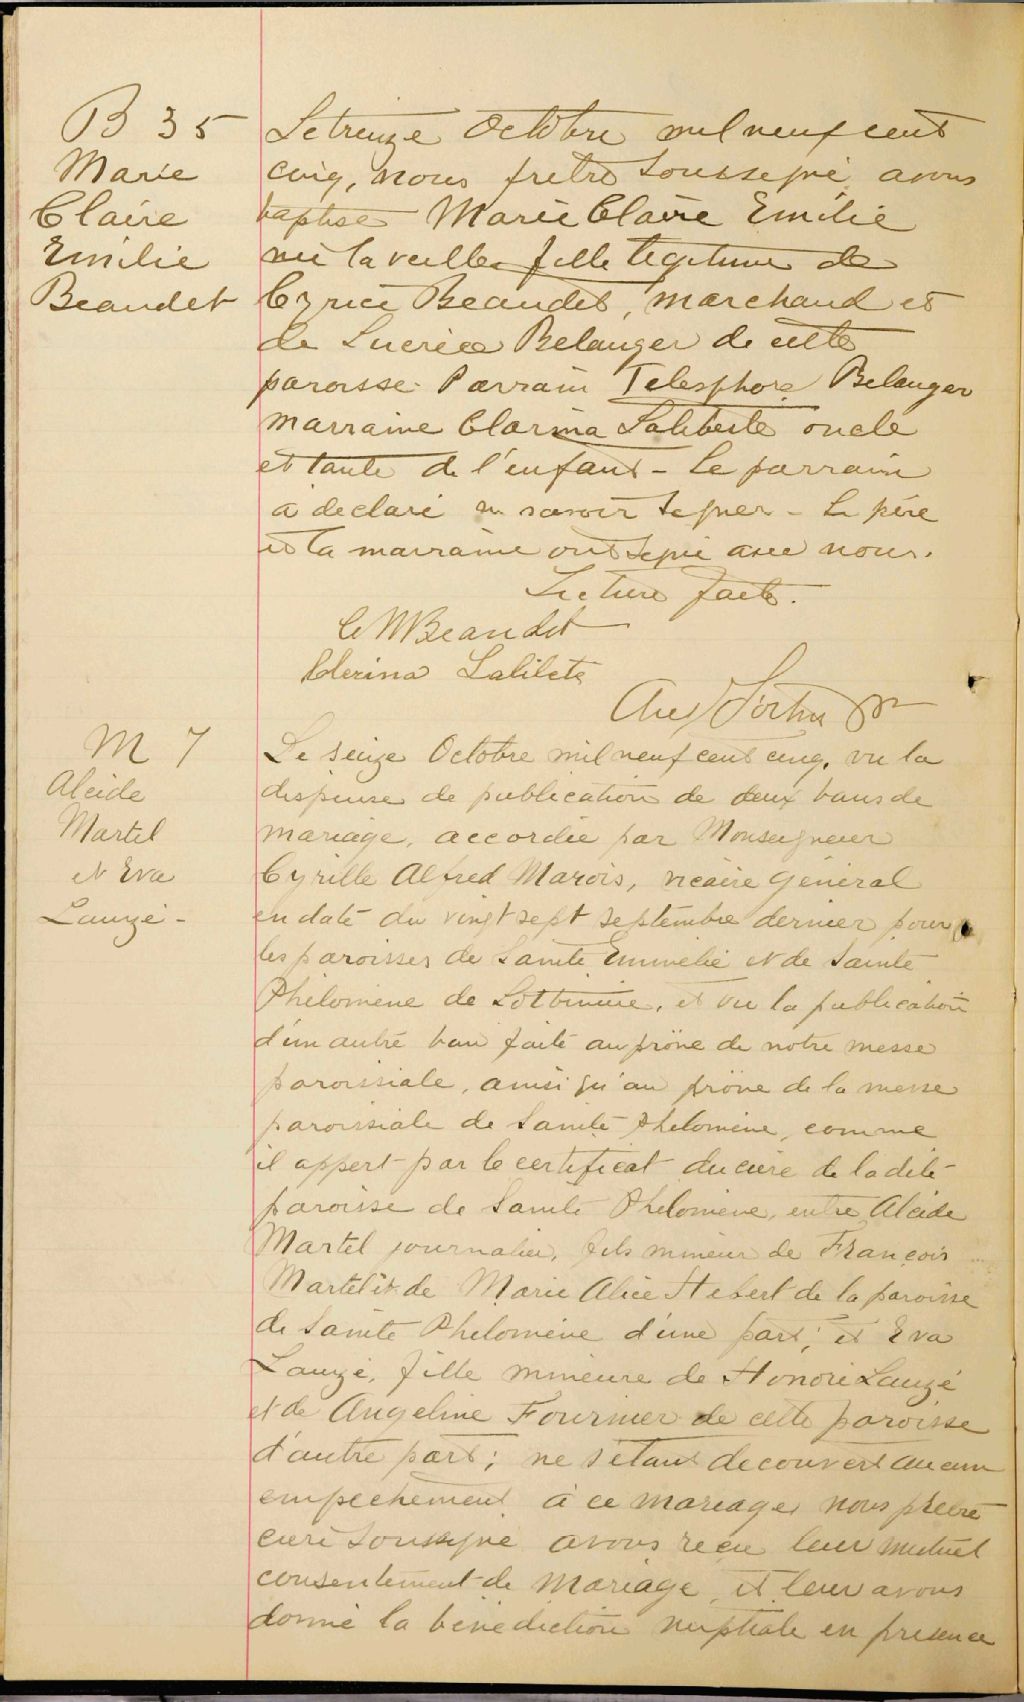 B 35
Marie
Claire
Emilie
Beaudet
Le treize Octobre mil neuf cent
cinq, nous prêtre soussigné avons
baptisé Marie Claire Emilie
née la veille, fille légitime de
Cyrice Beaudet, marchand et
de Lucrèce Belanger de cette
paroisse. Parrain Telesphore Belanger
marraine Clarina Laliberté oncle
et tante de l'enfant - Le parrain
a declaré ne savoir signer - Le père
et la marraine ont signé avec nous.
Lecture faite.
Beaudet
Clerina Laliberte
M 7
Alcide
Martel
et Eva
Lauzé -
Le seize Octobre mil neuf cent cinq, vu la
dispense de publication de deux bans de
mariage, accordée par Monseigneur
Cyrille Alfred Marois, vicaire général
en date du vingt sept septembre dernier pour
les paroisses de Sainte Emmelie et de Sainte
Philomène de Lotbinière, et vu la publication
d'un autre ban faite au prône de notre messe
paroissiale, ainsi qu'au prône de la messe
paroissiale de Sainte Philomène, comme
il appert par le certificat du curé de la dite
paroisse de Sainte Philomène, entre Alcide
Martel journalier, fils mineur de François
Martel et de Marie Alice Hebert de la paroisse
de Sainte Philomène d'une part; et Eva
Lauzé, fille mineure de Honoré Lauzé
et de Angeline Fournier de cette paroisse
d'autre part; ne s'étant decouvert aucun
empechement à ce mariage, nous prêtre
curé soussigné avons reçu leur mutuel
consentement de mariage et leur avons
donné la bénédiction nuptiale en présence